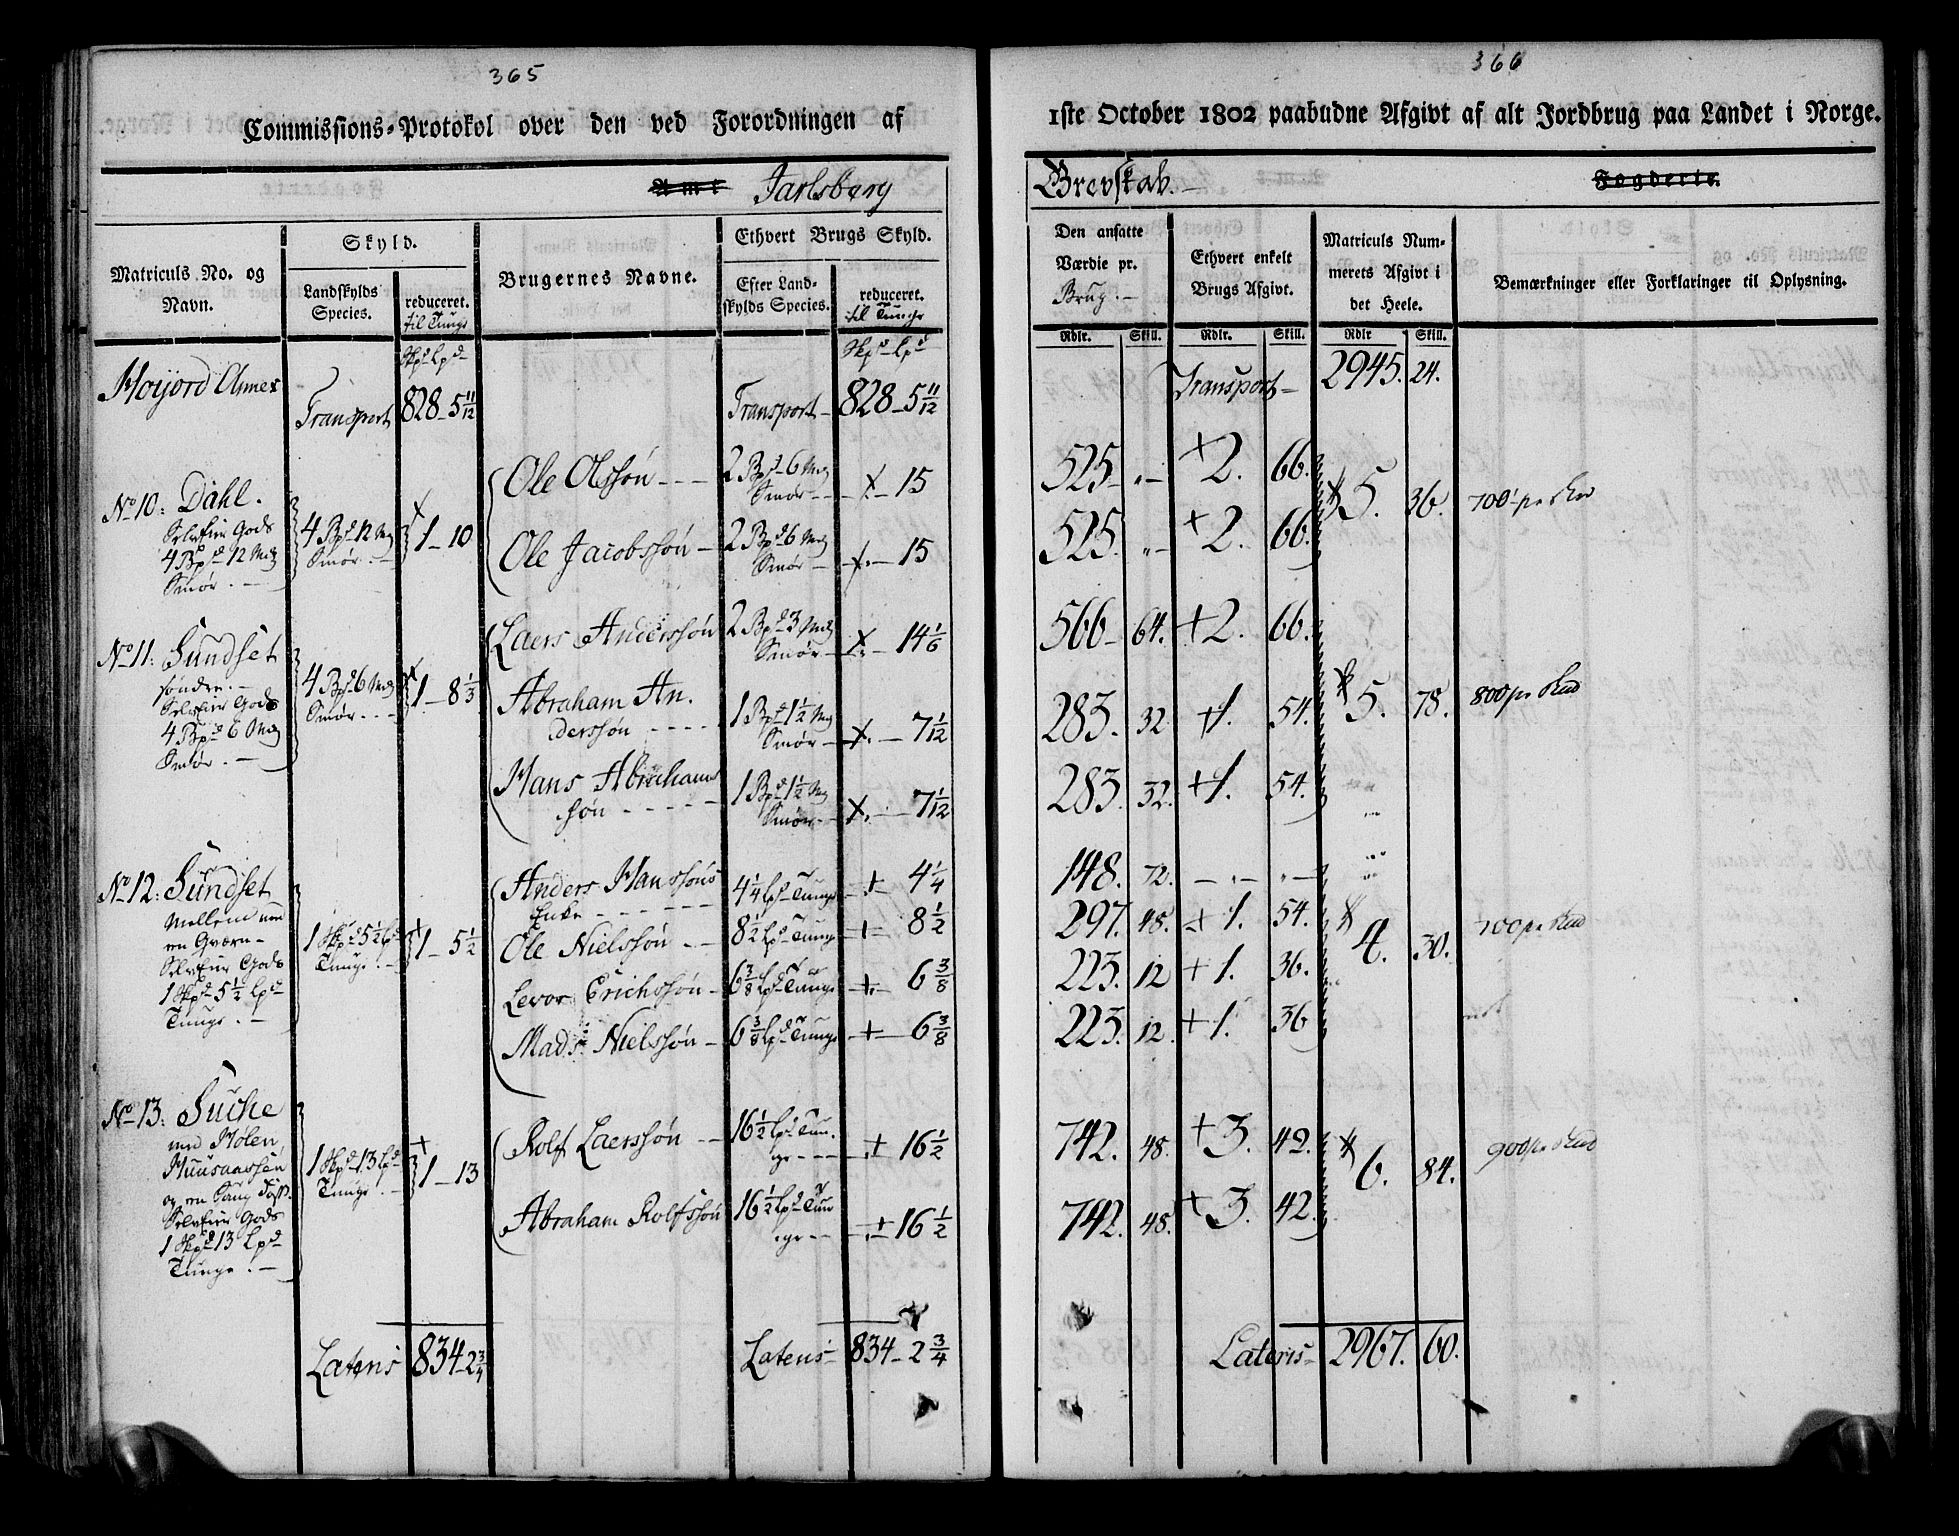 365
Commissions-Protokol over den ved Forordningen af
Amt Jarlsberg
Matriculs No. og Navn.
Skyld.
Landskylds Species.
reduceret. til Tunge
Brugernes Navne.
Ethvert Brugs Skyld.
Efter Landskylds Species.
reduceret. til Tunge
Skpd Lpd
Skpd Lpd
Transport 828 - 5 11/12
Transport - 828 - 5 11/12
No 10: Dahl.
Selveier Gods
4 Bpd 12 Mrk
Smør. -
4 Bpd 12 Mrk
Smør. -
1 - 10
Ole Olssøn - - -
2 Bpd 6 Mrk
Smør - -
15
Ole Jacobssøn -
2 Bpd 6 Mrk
Smør -
15
No 11: Sundset
søndre. -
Selveier Gods
4 Bpd 6 Mrk
Smør. -
4 Bpd 6 Mrk
Smør. - -
1 - 8 1/3
Laers Anderssøn
2 Bpd 3 Mrk
Smør -
14 1/6
Abraham An.
derssøn - - - -
1 Bpd 1 1/2 Mrk
Smør -
7 1/12
Hans Abrahams
søn - - - - -
1 Bpd 1 1/2 Mrk
Smør -
7 1/12
No 12: Sundset
Mellem med
en Qværn -
Selveier Gods
1 Skpd 5 1/2 Lpd
Tunge. -
1 Skpd 5 1/2 Lpd
Tunge. -
1 - 5 1/2
Anders Hanssøns
Enke - - - - - -
4 1/4 Lpd Tunge
4 1/4
Ole Nielssøn - -
8 1/2 Lpd Tunge
8 1/2
Levor Erichssøn -
6 3/8 Lpd Tunge
6 3/8
Mads Nielssøn -
6 3/8 Lpd Tunge
6 3/8
No 13:
Selveier Gods
1 Skpd 13 Lpd
Tunge. -
1 Skpd 13 Lpd
Tunge. -
1 - 13
Rolf Laerssøn - -
16 1/2 Lpd Tun.
ge - - - -
16 1/2
Abraham Rolfssøn
16 1/2 Lpd Tun
ge - -
16 1/2
Lateris 834 - 2 3/4
Lateris - 834 - 2 3/4
366
1ste October 1802 paabudne Afgivt af alt Jordbrug paa Landet i Norge.
Grevskab. -
Fogderie.
Den ansatte Værdie pr. Brug. -
Ethvert enkelt Brugs Afgivt.
Matriculs Nummerets Afgivt i det Heele.
Bemærkninger eller Forklaringer til Oplysning.
Rdlr. Skill. Rdlr. Skill. Rdlr Skill.
Transport - 2945. 24.
525 - „ - + 2. 66.
5. 36.
525. „ - + 2. 66.
566 - 64. + 2. 66.
283. 32 + 1. 54.
5. 78.
283. 32. + 1. 54.
148. 72. - „ - „ -
297. 48. + 1. 54.
4. 30.
223. 12 + 1. 36.
223. 12. + 1. 36
742. 48. + 3. 42.
6. 84.
742. 48. + 3. 42.
Lateris - 2967. 60.